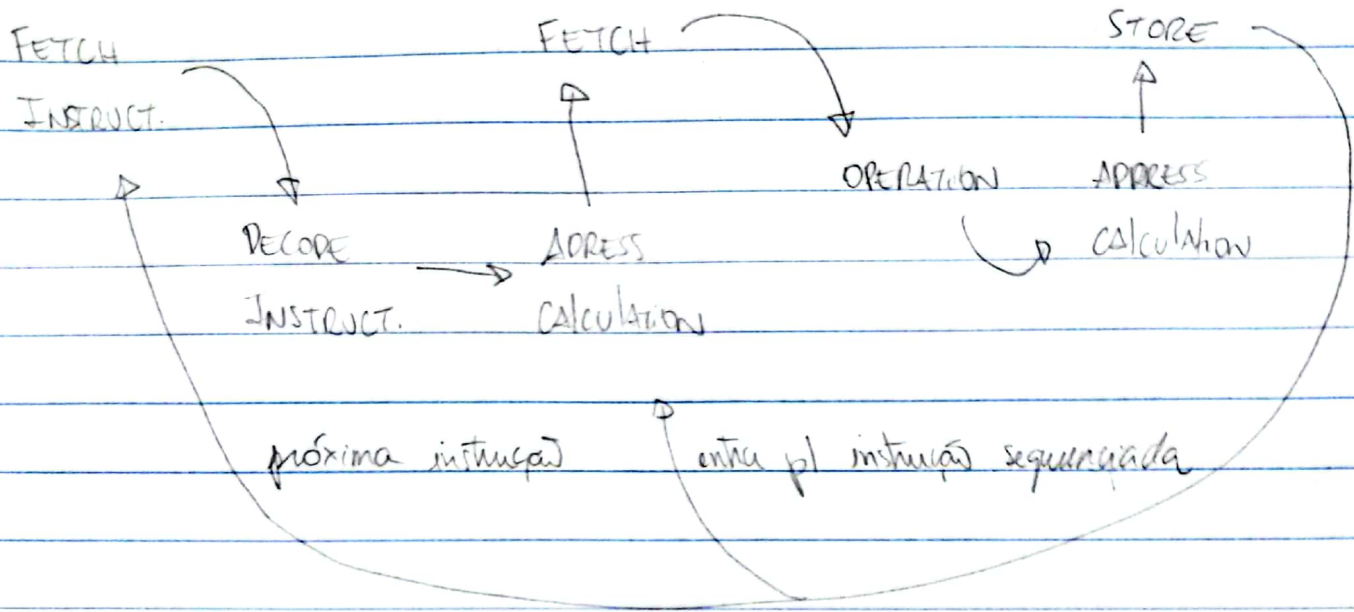 FETCH
INSTRUCT.
DECODE
INSTRUCT.
ADRESS
CALCULATION
FETCH
OPERATION
ADDRESS
CALCULATION
STORE
próxima instrução
entra p/ instrução sequenciada